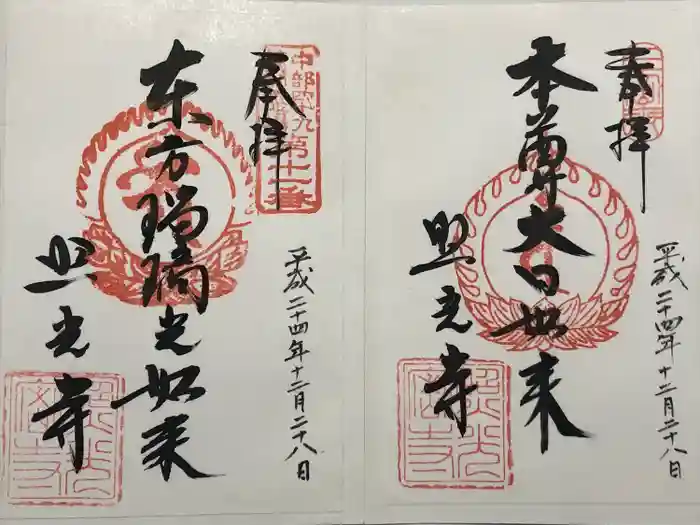 奉拝
本尊大日如来
照光寺
平成二十四年十二月二十八日
奉拝
東方瑠璃光如来
照光寺
平成二十四年十二月二十八日
中部四十九
第十一番